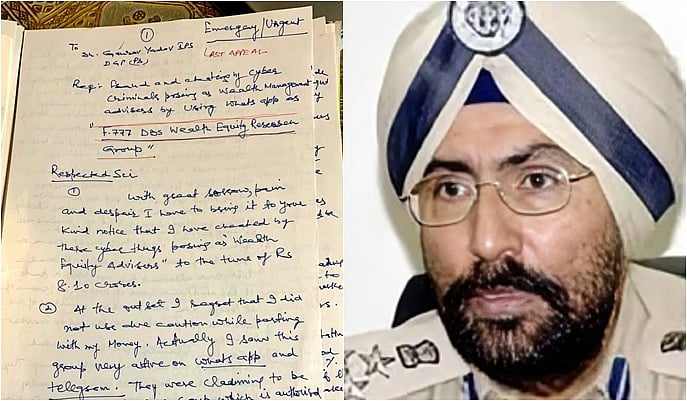 ① Emergency/Urgent
To
Sh. Gaurav Yadav IPS LAST APPEAL
DGP (Pb)
Reg: Fraud and cheating by Cyber
Criminals posing as Wealth Management
advisers by Using Whats app as
"F.777 DBS Wealth Equity Research
Group"
Respected Sir
① With great sorrow, pain
and despair I have to bring it to your
Kind notice that I have cheated by
these cyber thugs posing as Wealth
Equity Advisers" to the tune of Rs
8.10 crores.
② At the outset I regret that I did
not use due caution while parting
with my Money. Actually I saw this
group very active on whats app and
telegram. They were claiming to be
which is authorised